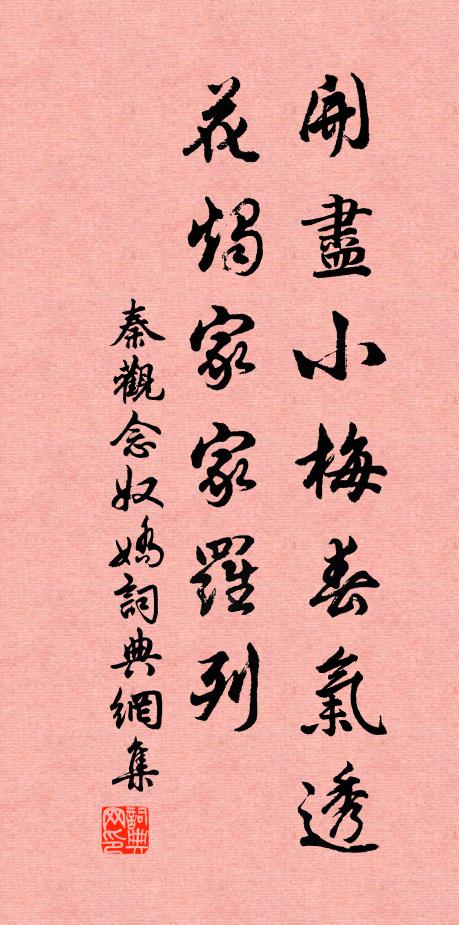 開盡小梅春氣透
花燭家家羅列
秦觀念奴嬌詞典網集
詞典网印